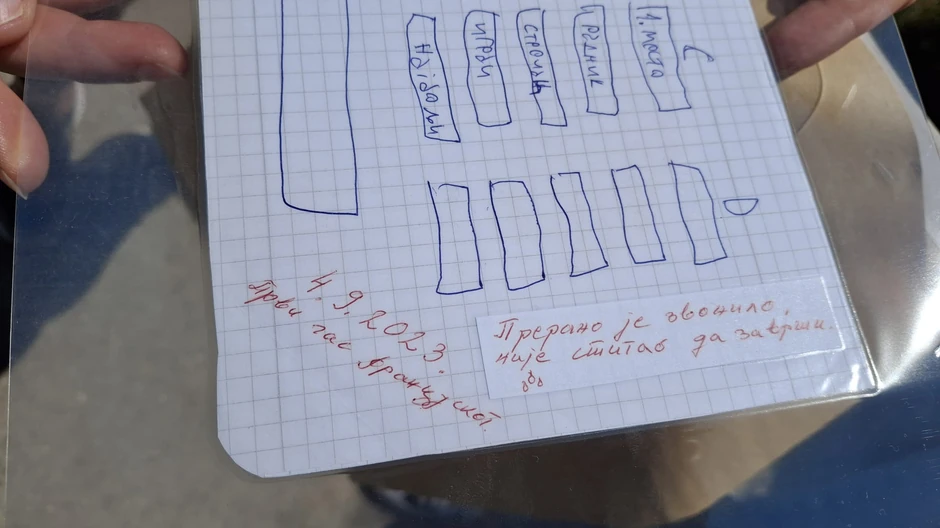 С
1. место
Градник
строчли
игрри
најбољи
D
4. 9. 2023.
Први час француског.
Прерано је звонило,
није стигао да заврши.